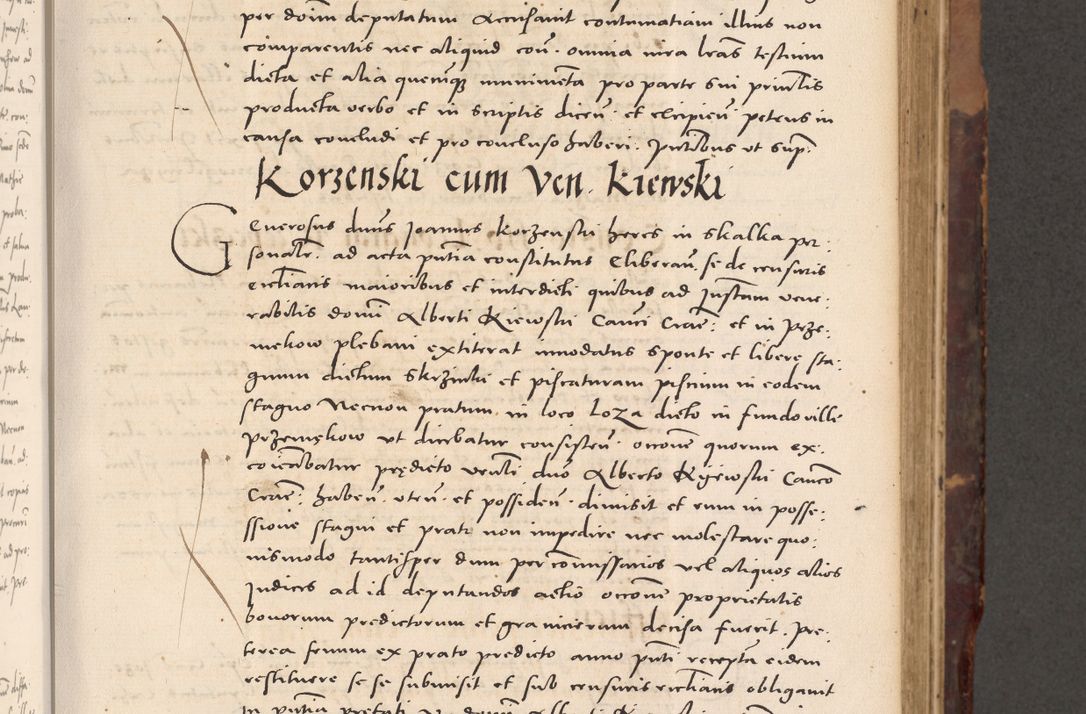 per doim deputatum Accusavit contumatiam illius non
comparentis nec aliquid con. omnia iura lras testium
dicta et alia quecunqz munimenta pro parte sui principalis
producta verbo et in scriptis dicen. et excipien. petens in
causa concludi et pro concluso haberi. putibus ut sup.
Korzenski cum Ven. Kiewski
Generosus dnus Joannes Korzenski heres in Skalka per:
sonalr. ad acta pntia constitutus Eliberan. se de censuris
ecclianis maioribus et interdicti quibus ad Instam vene:
rabilis domi Alberti Kiewski Canci Crac: et in Prze:
mekow plebani extiterat innodatus sponte et libere sta:
gnum dictum Skrzinki et piscaturam piscium in eodem
stagno Necnon pratum in loco Loza dicto in fundo ville
Przemękow ut dicebatur consisten. occone quorum ex:
coicabatur prędicto venli dno Alberto Kyiewski Canco
Crac: haben. uten. et possiden. dimisit et eum in posse:
ssione stagni et prati non impedire nec molestare quo:
vismodo tantisper dum per comissarios vel aliquos alios
Judices ad id deputandos actio occone proprietatis
bonorum predictorum et granicierum decisa fuerit. Pre:
terea fenum ex prato predicto anno pnti recepta eidem
restituere se se submisit et sub censuris ecclianis obligavit